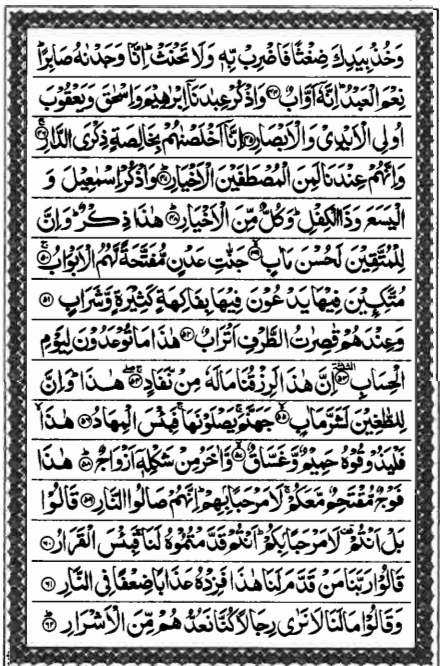 وَخُذْ بِيَدِكَ ضِغْثًا فَاضْرِبْ بِّهٖ وَلَا تَحْنَثْ ؕ اِنَّا وَجَدْنٰهُ صَابِرًا ؕ
نِعْمَ الْعَبْدُ ؕ اِنَّهٗۤ اَوَّابٌ ﴿۴۴﴾ وَاذْكُرْ عِبٰدَنَاۤ اِبْرٰهِيْمَ وَاِسْحٰقَ وَيَعْقُوْبَ
اُولِي الْاَيْدِيْ وَالْاَبْصَارِ ﴿۴۵﴾ اِنَّاۤ اَخْلَصْنٰهُمْ بِخَالِصَةٍ ذِكْرَى الدَّارِ ﴿۴۶﴾
وَاِنَّهُمْ عِنْدَنَا لَمِنَ الْمُصْطَفَيْنَ الْاَخْيَارِ ﴿۴۷﴾ وَاذْكُرْ اِسْمٰعِيْلَ وَ
الْيَسَعَ وَذَا الْكِفْلِ ؕ وَكُلٌّ مِّنَ الْاَخْيَارِ ﴿۴۸﴾ هٰذَا ذِكْرٌ ؕ وَاِنَّ
لِلْمُتَّقِيْنَ لَحُسْنَ مَاٰبٍ ﴿۴۹﴾ جَنّٰتِ عَدْنٍ مُّفَتَّحَةً لَّهُمُ الْاَبْوَابُ ﴿۵۰﴾
مُتَّكِـِٕيْنَ فِيْهَا يَدْعُوْنَ فِيْهَا بِفَاكِهَةٍ كَثِيْرَةٍ وَّشَرَابٍ ﴿۵۱﴾
وَعِنْدَهُمْ قٰصِرٰتُ الطَّرْفِ اَتْرَابٌ ﴿۵۲﴾ هٰذَا مَا تُوْعَدُوْنَ لِيَوْمِ
الْحِسَابِ ﴿۵۳﴾ اِنَّ هٰذَا لَرِزْقُنَا مَا لَهٗ مِنْ نَّفَادٍ ﴿۵۴﴾ هٰذَا ؕ وَاِنَّ
لِلطّٰغِيْنَ لَشَرَّ مَاٰبٍ ﴿۵۵﴾ جَهَنَّمَ ۚ يَصْلَوْنَهَا ۚ فَبِئْسَ الْمِهَادُ ﴿۵۶﴾ هٰذَا ۙ
فَلْيَذُوْقُوْهُ حَمِيْمٌ وَّغَسَّاقٌ ﴿۵۷﴾ وَّاٰخَرُ مِنْ شَكْلِهٖۤ اَزْوَاجٌ ﴿۵۸﴾ هٰذَا
فَوْجٌ مُّقْتَحِمٌ مَّعَكُمْ ۚ لَا مَرْحَبًۢا بِهِمْ ؕ اِنَّهُمْ صَالُوا النَّارِ ﴿۵۹﴾ قَالُوْا
بَلْ اَنْتُمْ ۟ لَا مَرْحَبًۢا بِكُمْ ؕ اَنْتُمْ قَدَّمْتُمُوْهُ لَنَا ۚ فَبِئْسَ الْقَرَارُ ﴿۶۰﴾
قَالُوْا رَبَّنَا مَنْ قَدَّمَ لَنَا هٰذَا فَزِدْهُ عَذَابًا ضِعْفًا فِي النَّارِ ﴿۶۱﴾
وَقَالُوْا مَا لَنَا لَا نَرٰى رِجَالًا كُنَّا نَعُدُّهُمْ مِّنَ الْاَشْرَارِ ﴿۶۲﴾